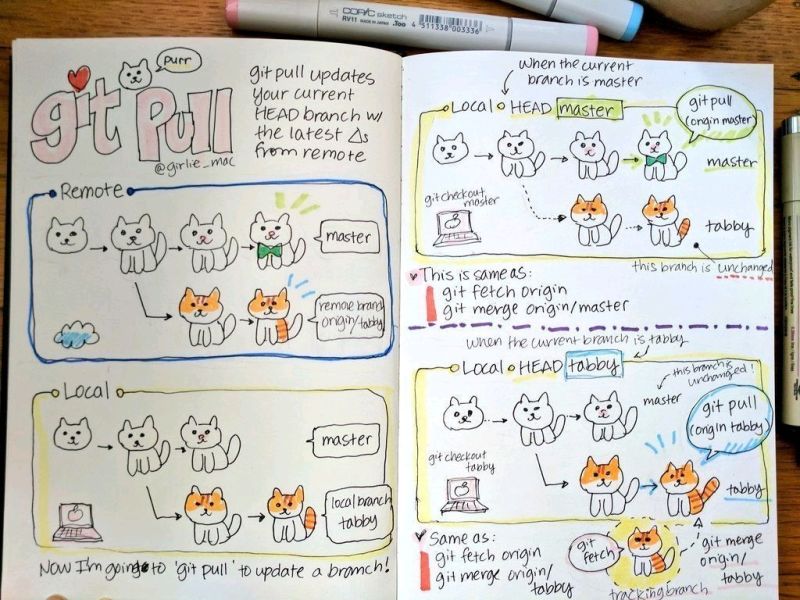 COPIC sketch
RV11 MADE IN JAPAN .Too
4 511338 003336
purr
git Pull
@girlie_mac
git pull updates
your current
HEAD branch w/
the latest Δs
from remote
Remote
master
remote branch
origin/tabby
Local
master
local branch
tabby
Now I'm going to 'git pull' to update a branch!
when the current
branch is master
Local HEAD master
git pull
(origin master)
master
git checkout
master
tabby
this branch is unchanged
This is same as:
git fetch origin
git merge origin/master
when the current branch is tabby
Local HEAD tabby
this branch is
unchanged!
master
git pull
(origin tabby)
git checkout
tabby
tabby
Same as:
git fetch origin
git merge origin/
tabby
git
fetch
tracking branch
git merge
origin/
tabby